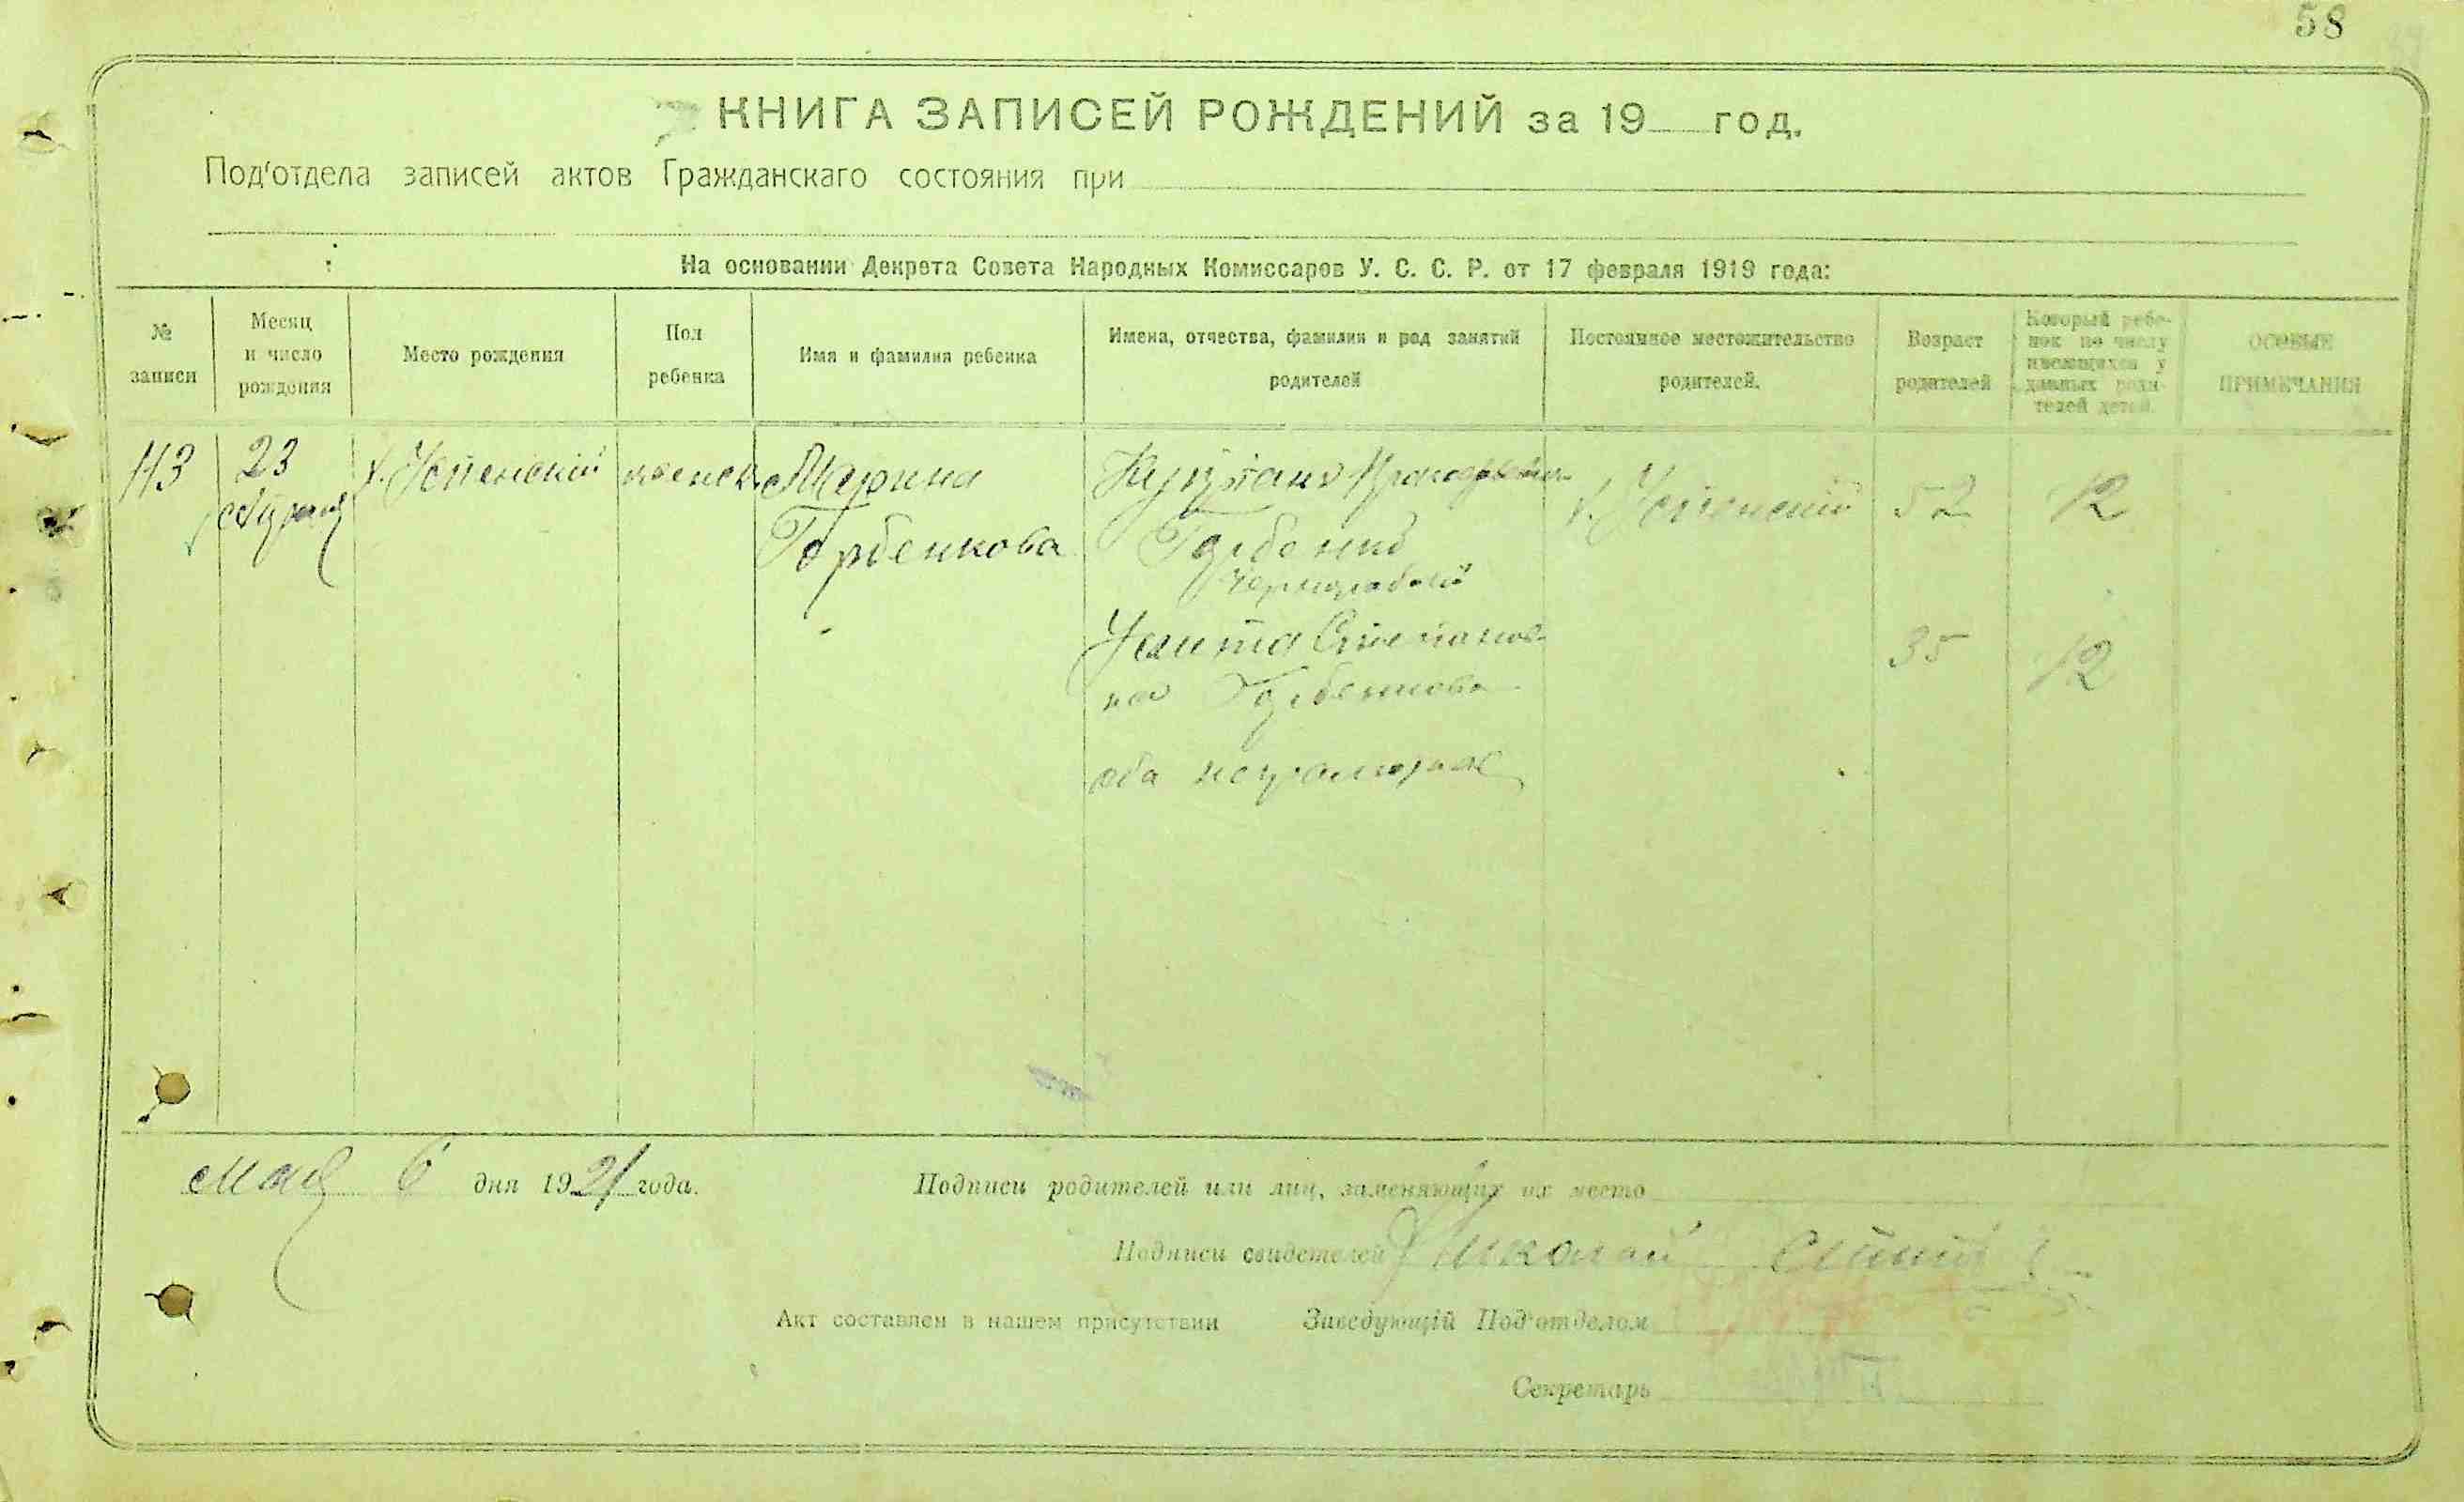 58
КНИГА ЗАПИСЕЙ РОЖДЕНИЙ за 19 год.
Под'отдела записей актов Гражданскаго состояния при
На основании Декрета Совета Народных Комиссаров У. С. С. Р. от 17 февраля 1919 года:
№ записи
Месяц и число рождения
Место рождения
Пол ребенка
Имя и фамилия ребенка
Имена, отчества, фамилии и род занятий родителей
Постоянное местожительство родителей.
Возраст родителей
Который ребенок по числу имеющихся у данных родителей детей.
ОСОБЫЕ ПРИМЕЧАНИЯ
113
23
Апреля
х. Успенский
женск.
Марина
Горбенкова
Горбенко
Чернорабочий
Улита Степанов-
на Горбенкова
оба неграмотные
х. Успенский
52
12
35
12
Мая 6 дня 1921 года.
Подписи родителей или лиц, заменяющих их место
Подписи свидетелей Николай
Акт составлен в нашем присутствии Заведующій Под'отделом
Секретарь